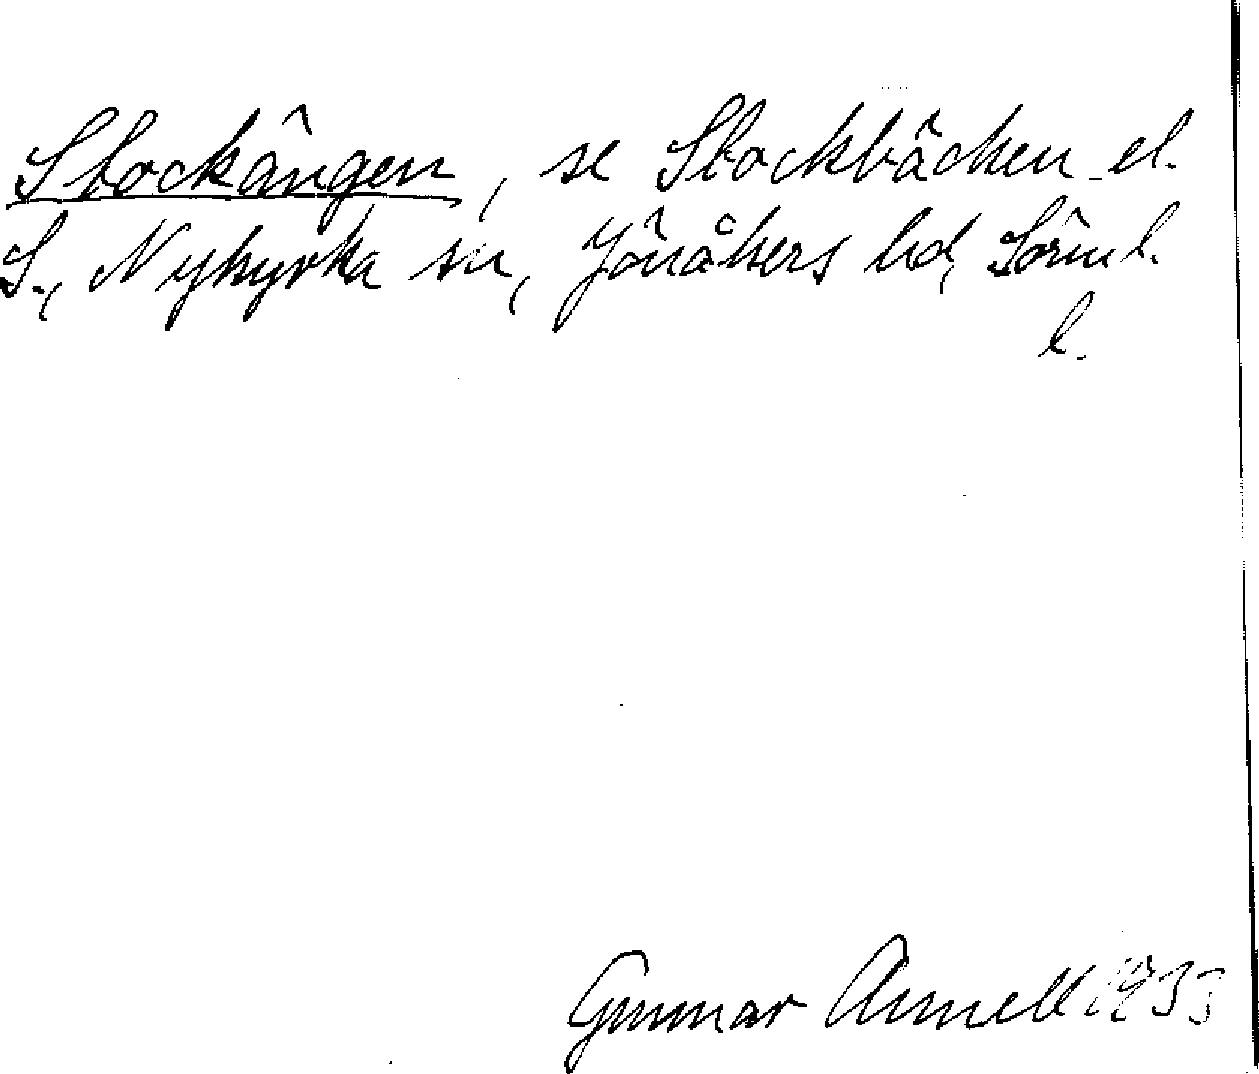 Stockängen, se Stockbäcken el.
S., Nykyrka sn, Jönåkers hd, Sörml.
l.
Gunnar Annell 1933